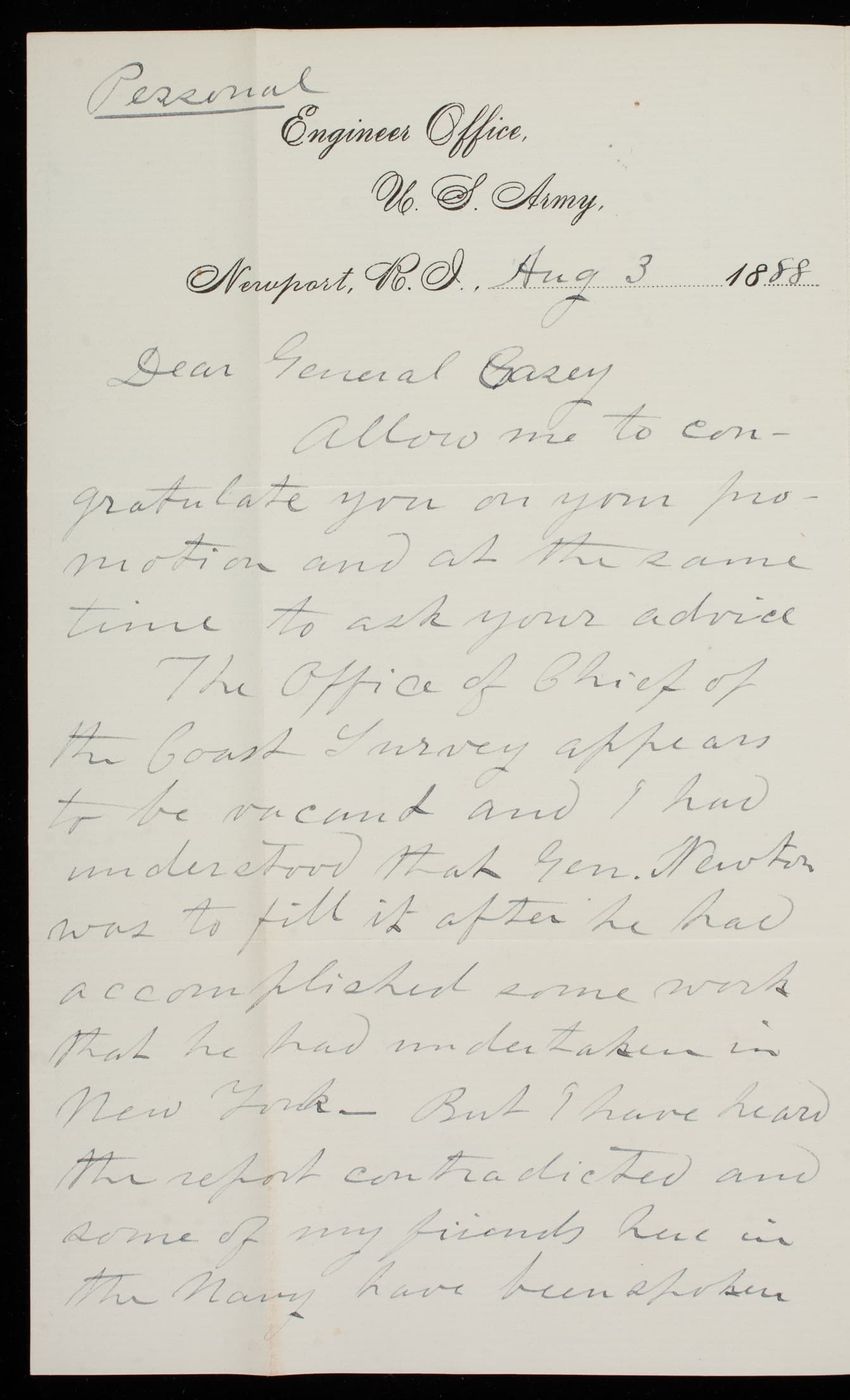 Personal
Engineer Office,
U. S. Army,
Newport, R. I., Aug 3 1888
Dear General Casey
Allow me to con-
gratulate you on your pro-
motion and at the same
time to ask your advice
The Office of Chief of
the Coast Survey appears
to be vacant and I had
understood that Gen. Newton
was to fill it after he had
accomplished some work
that he had undertaken in
New York - But I have heard
the report contradicted and
some of my friends here in
the Navy have been spoken